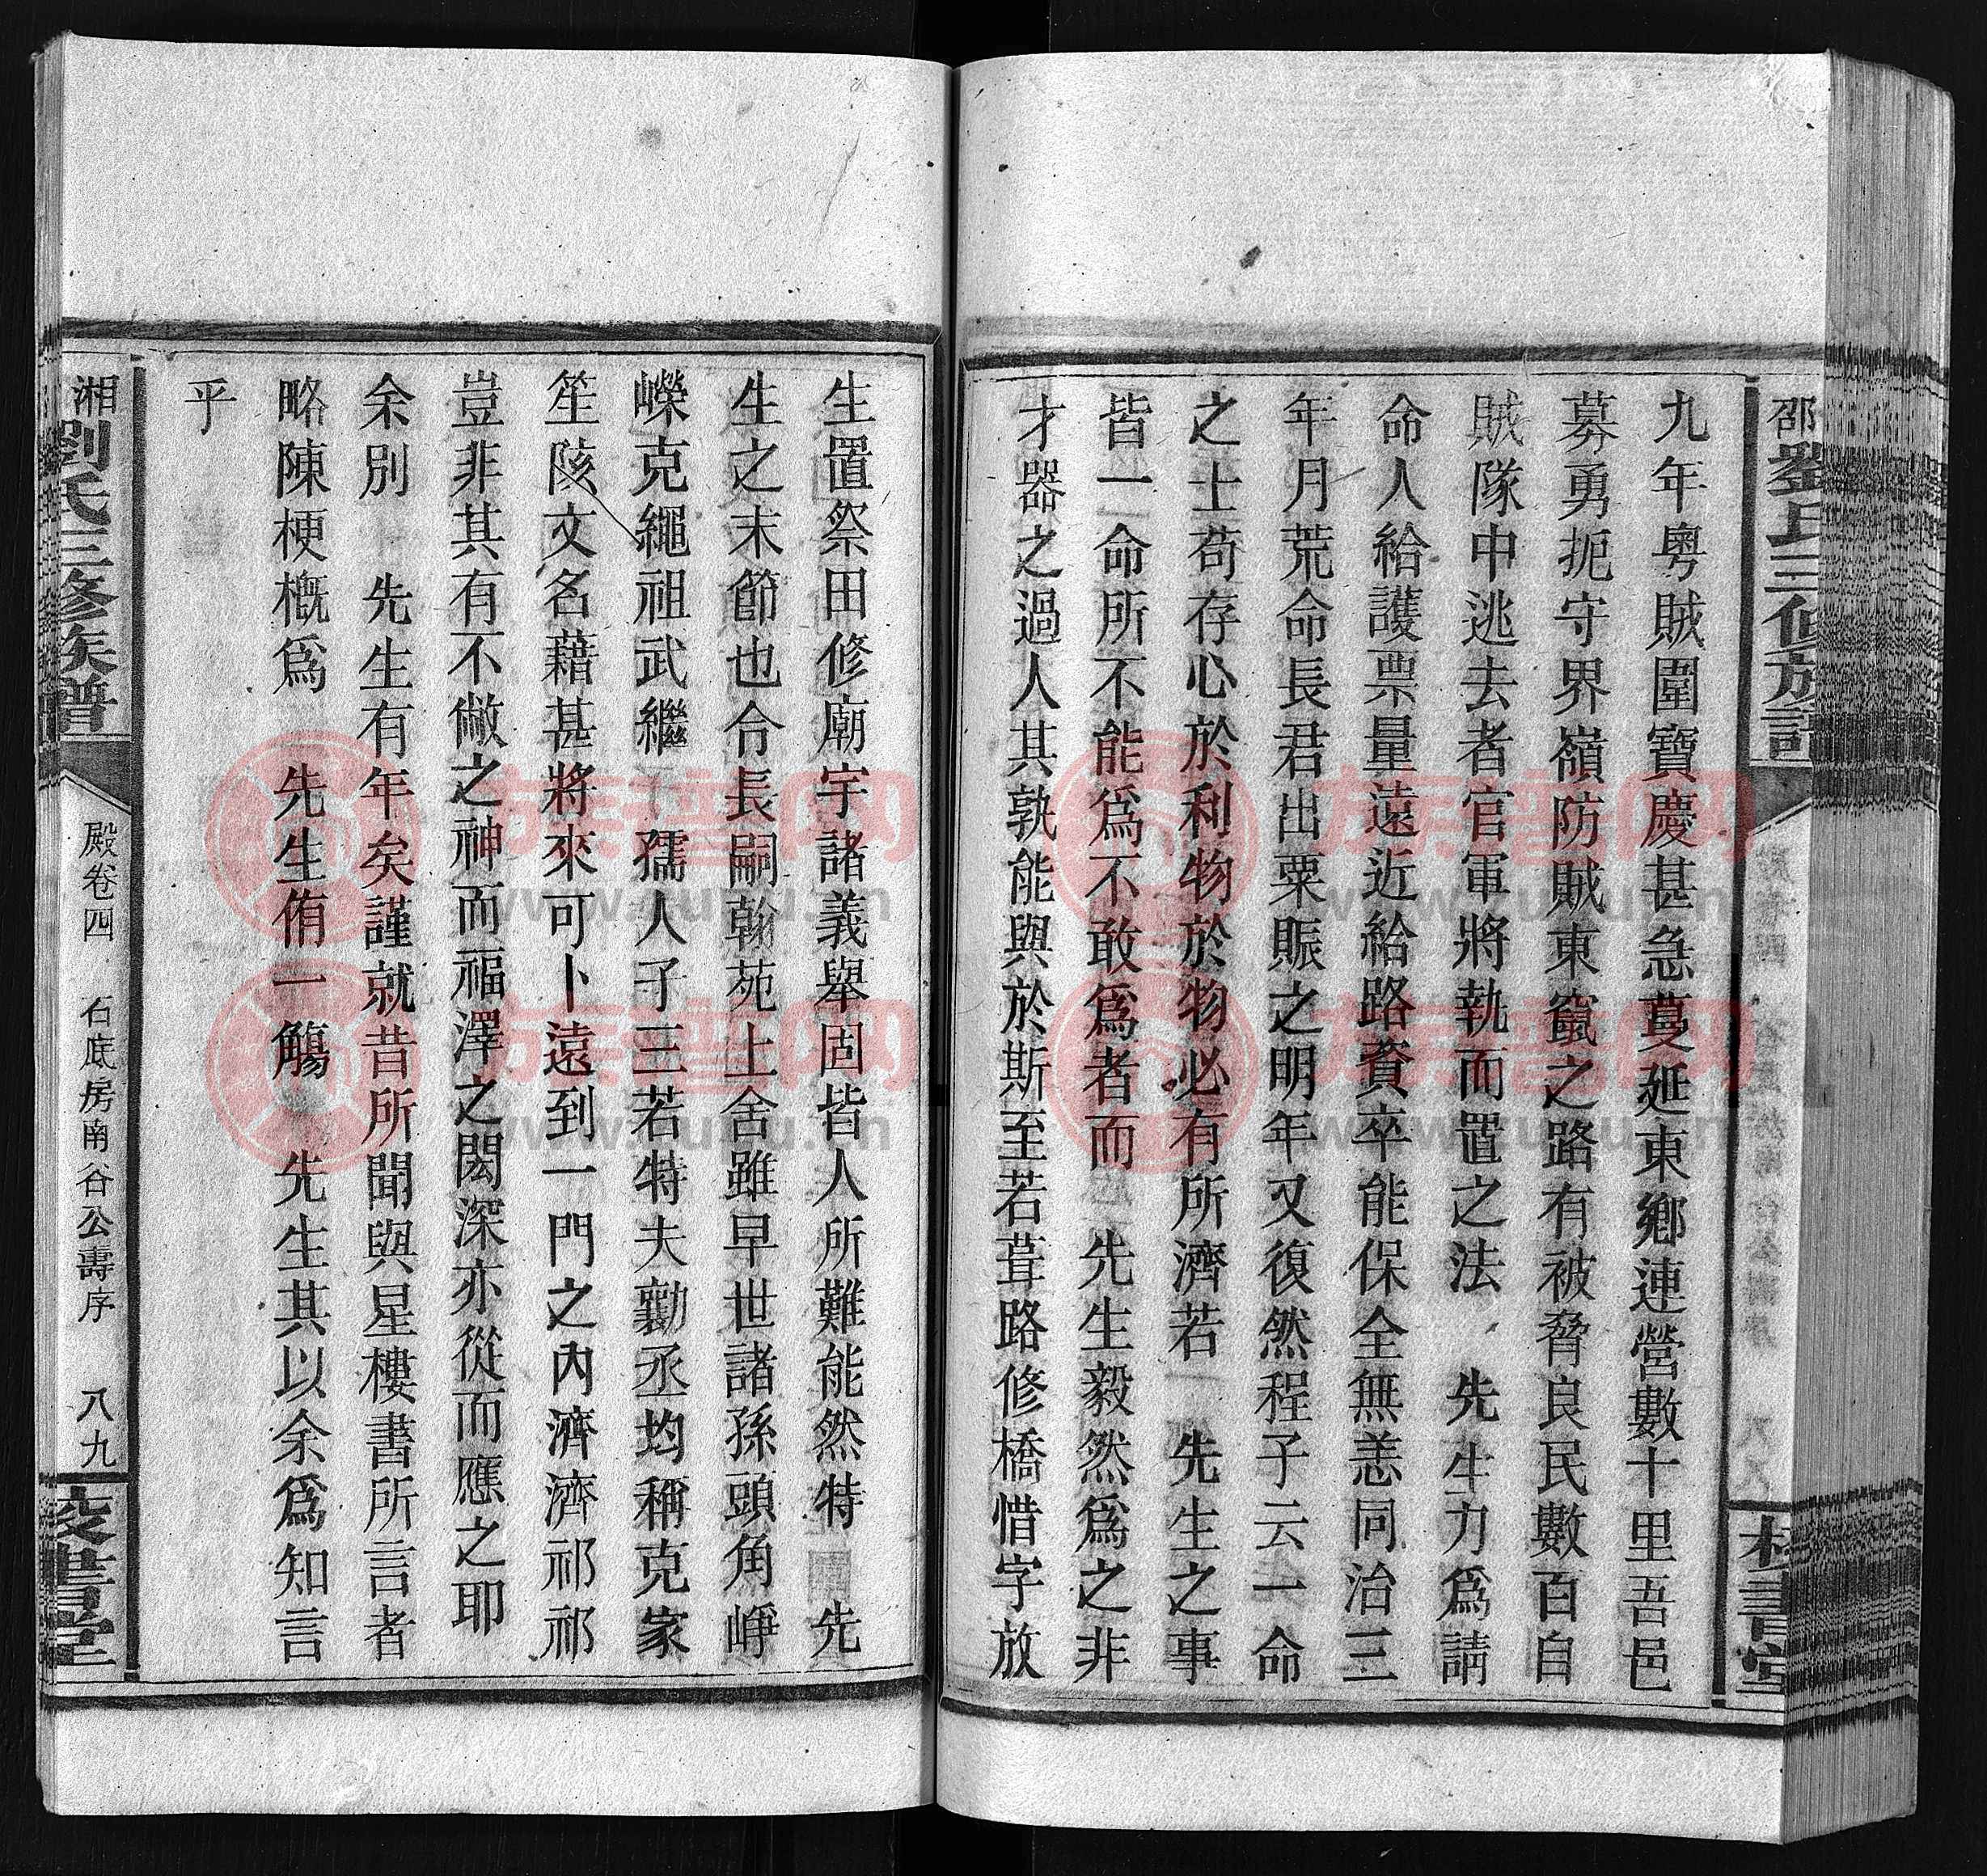 邵劉氏三修族譜
校書堂
九年粵賊圍寶慶甚急蔓延東鄉連營數十里吾邑
募勇扼守界嶺防賊東竄之路有被脅良民數百自
賊隊中逃去者官軍將執而置之法　先生力爲請
命人給護票量遠近給路資卒能保全無恙同治三
年月荒命長君出粟賑之明年又復然程子云一命
之士苟存心於利物於物必有所濟若　先生之事
皆一命所不能爲不敢爲者而　先生毅然爲之非
才器之過人其孰能與於斯至若葺路修橋惜字放
生置祭田修廟宇諸義舉固皆人所難能然特　先
生之末節也合長嗣翰苑上舍雖早世諸孫頭角崢
嶸克繩祖武繼　孺人子三若特夫勷丞均稱克家
笙陔文名藉甚將來可卜遠到一門之內濟濟祁祁
豈非其有不敝之神而福澤之閎深亦從而應之耶
余別　先生有年矣謹就昔所聞與星樓書所言者
略陳梗概爲　先生侑一觴　先生其以余爲知言
乎
湘劉氏三修族譜
殿卷四　石底房南谷公壽序　八九
校書堂
族譜网
www.zupu.cn
族譜网
www.zupu.cn
族譜网
www.zupu.cn
族譜网
www.zupu.cn